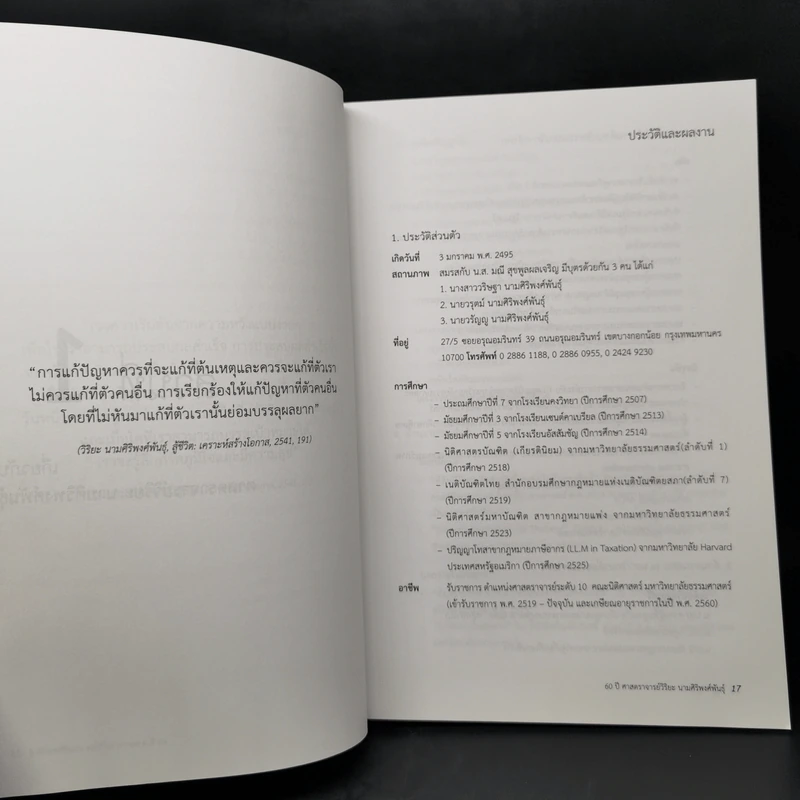 “การแก้ปัญหาควรที่จะแก้ที่ต้นเหตุและควรจะแก้ที่ตัวเรา
ไม่ควรแก้ที่ตัวคนอื่น การเรียกร้องให้แก้ปัญหาที่ตัวคนอื่น
โดยที่ไม่หันมาแก้ที่ตัวเรานั้นย่อมบรรลุผลยาก”
(วิริยะ นามศิริพงศ์พันธุ์, สู้ชีวิต: เคราะห์สร้างโอกาส, 2541, 191)
ประวัติและผลงาน
1. ประวัติส่วนตัว
เกิดวันที่ 3 มกราคม พ.ศ. 2495
สถานภาพ สมรสกับ น.ส. มณี สุขพูลผลเจริญ มีบุตรด้วยกัน 3 คน ได้แก่
1. นางสาววริษฐา นามศิริพงศ์พันธุ์
2. นายวรุตม์ นามศิริพงศ์พันธุ์
3. นายวรัญญู นามศิริพงศ์พันธุ์
ที่อยู่ 27/5 ซอยอรุณอมรินทร์ 39 ถนนอรุณอมรินทร์ เขตบางกอกน้อย กรุงเทพมหานคร
10700 โทรศัพท์ 0 2886 1188, 0 2886 0955, 0 2424 9230
การศึกษา
– ประถมศึกษาปีที่ 7 จากโรงเรียนคงวิทยา (ปีการศึกษา 2507)
– มัธยมศึกษาปีที่ 3 จากโรงเรียนเซนต์คาเบรียล (ปีการศึกษา 2513)
– มัธยมศึกษาปีที่ 5 จากโรงเรียนอัสสัมชัญ (ปีการศึกษา 2514)
– นิติศาสตรบัณฑิต (เกียรตินิยม) จากมหาวิทยาลัยธรรมศาสตร์(ลำดับที่ 1)
(ปีการศึกษา 2518)
– เนติบัณฑิตไทย สำนักอบรมศึกษากฎหมายแห่งเนติบัณฑิตยสภา(ลำดับที่ 7)
(ปีการศึกษา 2519)
– นิติศาสตร์มหาบัณฑิต สาขากฎหมายแพ่ง จากมหาวิทยาลัยธรรมศาสตร์
(ปีการศึกษา 2523)
– ปริญญาโทสาขากฎหมายภาษีอากร (LL.M in Taxation) จากมหาวิทยาลัย Harvard
ประเทศสหรัฐอเมริกา (ปีการศึกษา 2525)
อาชีพ รับราชการ ตำแหน่งศาสตราจารย์ระดับ 10 คณะนิติศาสตร์ มหาวิทยาลัยธรรมศาสตร์
(เข้ารับราชการ พ.ศ. 2519 – ปัจจุบัน และเกษียณอายุราชการในปี พ.ศ. 2560)
60 ปี ศาสตราจารย์วิริยะ นามศิริพงศ์พันธุ์ 17